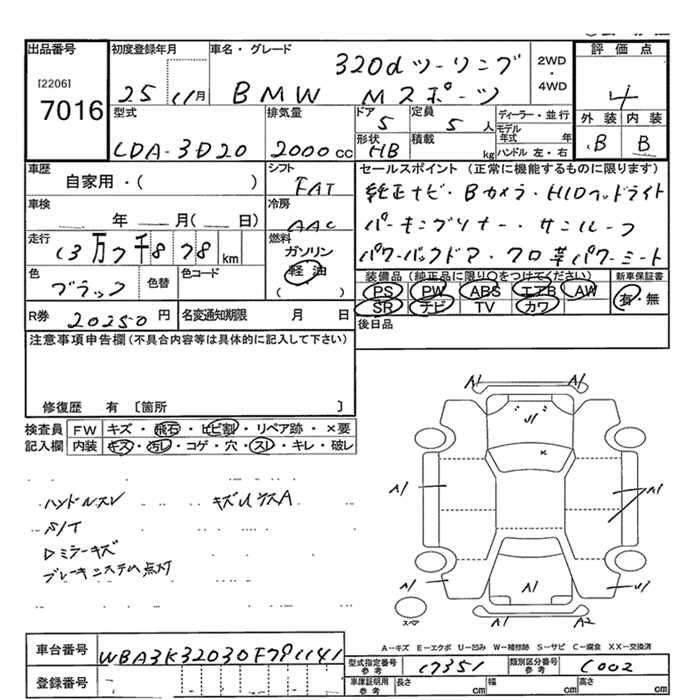 出品番号 初度登録年月 車名・グレード 320d ツーリング 2WD・4WD 評価点
[2206] 7016 25 11月 BMW Mスポーツ 4
型式 排気量 ドア 定員 ディーラー・並行 外装 内装
LDA-3D20 2000cc 5 5人 モデル年式 年 B B
形状 HB 積載 kg ハンドル 左・右
車歴 シフト セールスポイント(正常に機能するものに限ります)
自家用・( ) FAT 純正ナビ・Bカメラ・HIDヘッドライト
車検 冷房
年 月( 日) AAC パーキングソナー・サンルーフ
走行 燃料
13万7千878km ガソリン 軽油 ( ) パワーバックドア・クロ革パワーシート
色 色替 色コード 装備品(純正品に限り○をつけてください) 新車保証書
ブラック PS PW ABS エアB AW 有・無
SR ナビ TV カワ
R券 20250円 名変通知期限 月 日 後日品
注意事項申告欄(不具合内容等は具体的に記入して下さい)
修復歴 有 〔箇所 〕
検査員 FW キズ・飛石・ヒビ割・リペア跡・×要
記入欄 内装 キズ・汚レ・コゲ・穴・スレ・キレ・破レ
ハンドルスレ
S/T
Dミラーキズ
ブレーキシステム点灯
A1 A1
U1
A1 A1
A1 A1 U1
A1 A2
スペア
A-キズ E-エクボ U-凹み W-補修跡 S-サビ C-腐食 XX-交換済
車台番号 WBA3K32030F791141
型式指定番号 参考 17351 類別区分番号 参考 C002
登録番号 車庫証明用 参考 長さ cm 幅 cm 高さ cm